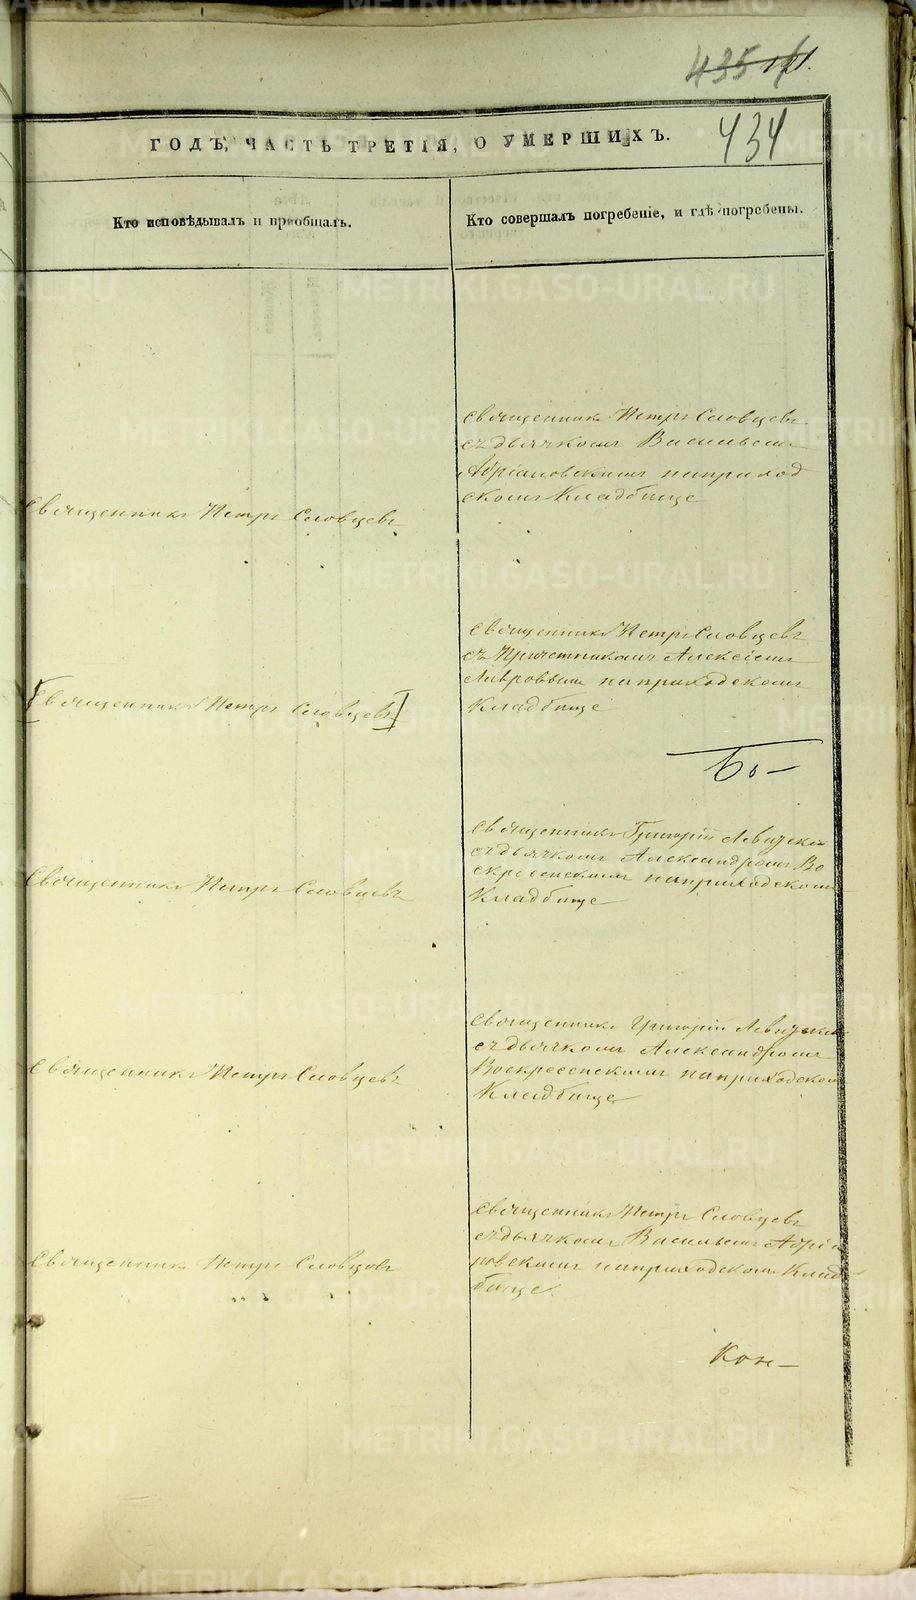 435
434
ГОДЪ, ЧАСТЬ ТРЕТІЯ, О УМЕРШИХЪ.
Кто исповѣдывалъ и пріобщалъ.
Кто совершалъ погребеніе, и гдѣ погребены.
Священникъ Петръ Словцевъ
Священникъ Петръ Словцевъ
съ дьячкомъ Васильемъ
Адріановскимъ на приход
скомъ Кладбище
Священникъ Петръ Словцевъ
Священникъ Петръ Словцевъ
съ Причетникомъ Алексіемъ
Лавровымъ на приходскомъ
Кладбище
Бо-
Священникъ Петръ Словцевъ
Священникъ Григорій Левицкій
съ дьячкомъ Александромъ Во
скресенскимъ на приходскомъ
Кладбище
Священникъ Петръ Словцевъ
Священникъ Григорій Левицкій
съ дьячкомъ Александромъ
Воскресенскимъ на приходскомъ
Кладбище
Священникъ Петръ Словцовъ
Священникъ Петръ Словцевъ
съ дьячкомъ Васильемъ Адріа
новскимъ на приходскомъ Клад
бище.
Кон-
METRIKI.GASO-URAL.RU